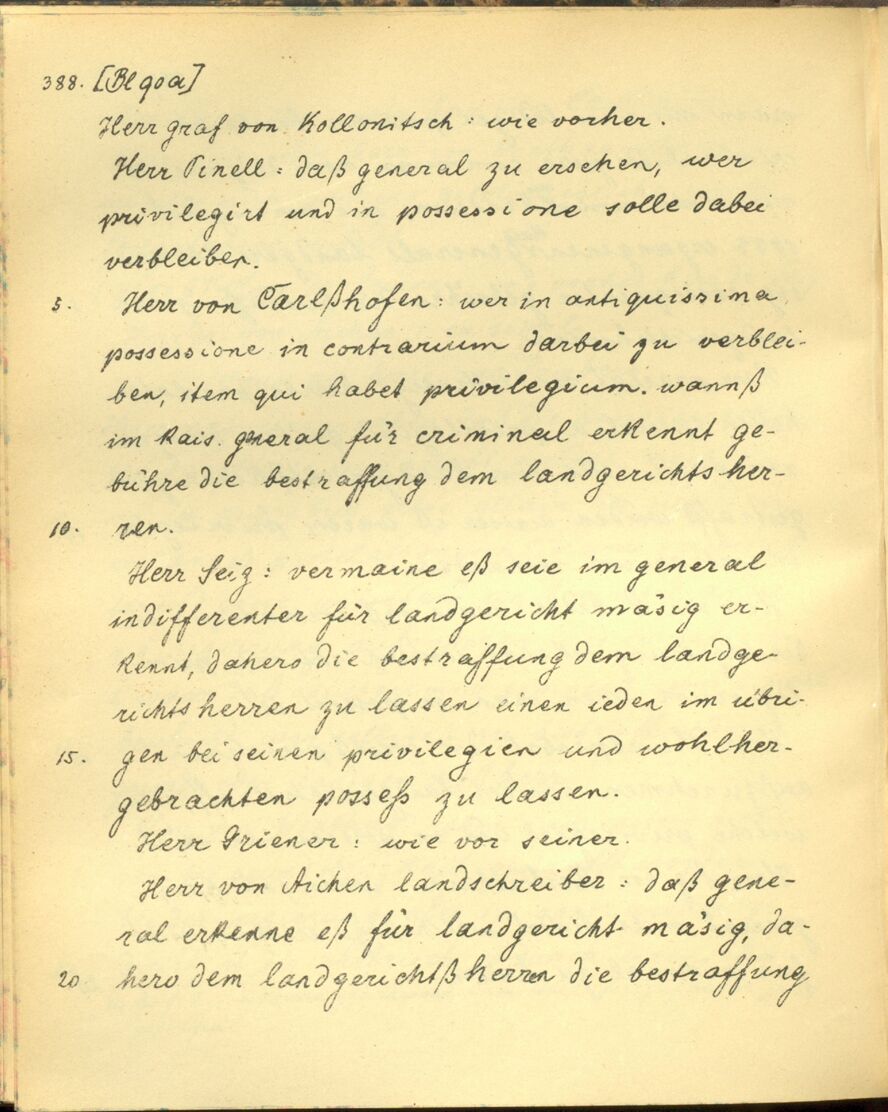 388. [Bl 90a]
Herr graf von Kollonitsch : wie vorher.
Herr Pinell : daß general zu ersehen, wer
privilegirt und in possessione solle dabei
verbleiben.
5. Herr von Carlßhofen : wer in antiquissima
possessione in contrarium darbei zu verblei-
ben, item qui habet privilegium. wannß
im Kais. general für criminal erkennt ge-
bühre die bestraffung dem landgerichts her-
10. ren.
Herr Seiz : vermaine eß seie im general
indifferenter für landgericht mäsig er-
kennt, dahero die bestraffung dem landge-
richts herren zu lassen einen ieden im übri-
15. gen bei seinen privilegien und wohlher-
gebrachten posseß zu lassen.
Herr Griener : wie vor seiner.
Herr von Aichen landschreiber : daß gene-
ral erkenne eß für landgericht mäsig, da-
20 hero dem landgerichtß herren die bestraffung